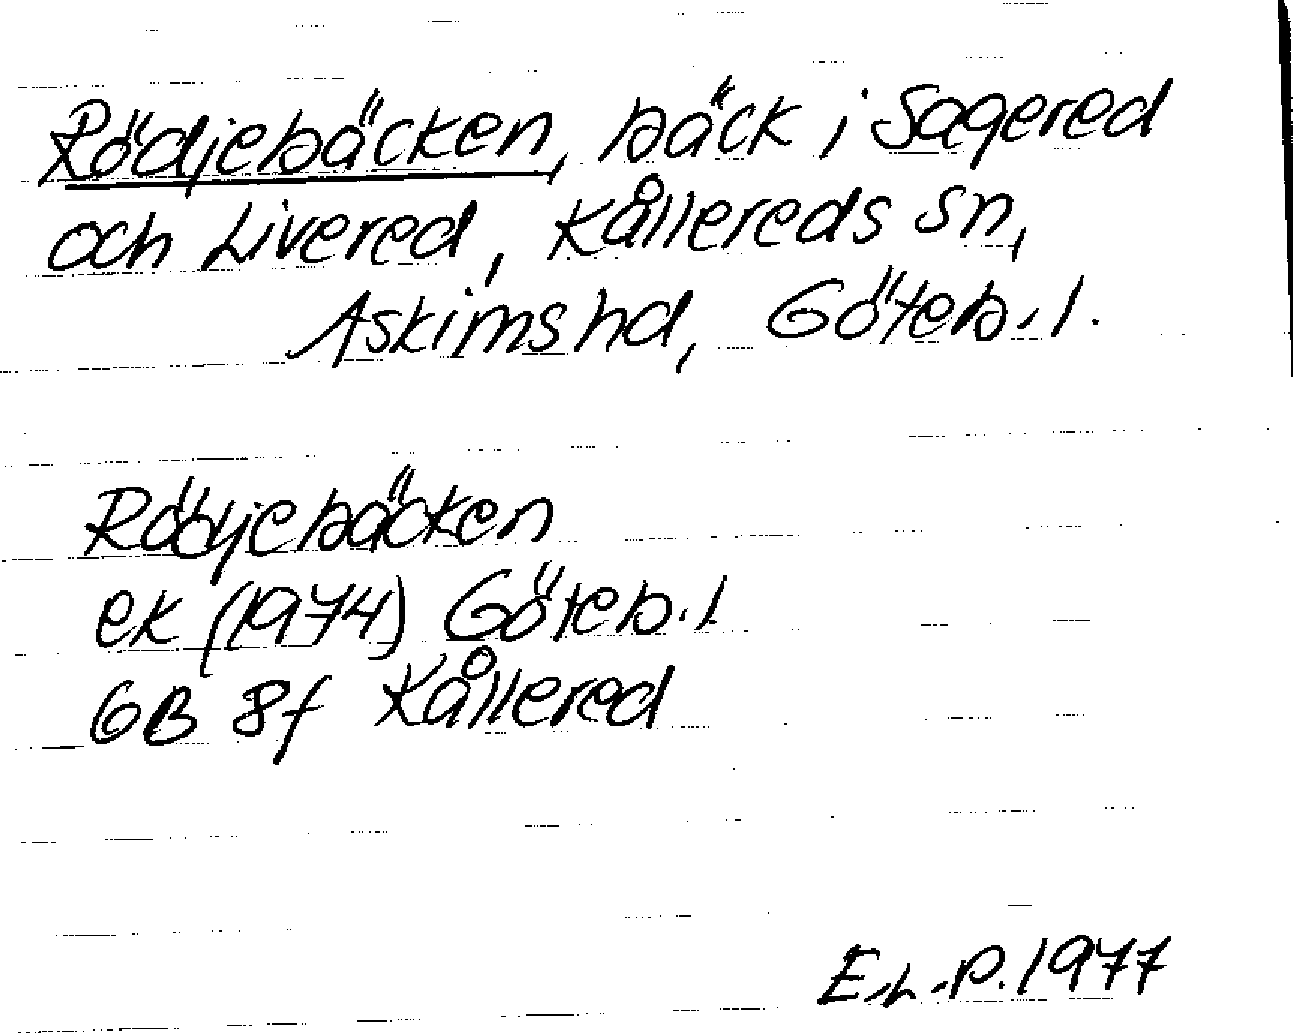 Rödjebäcken, bäck i Sagered
och Livered, Kållereds sn,
Askims hd, Göteb.l.
Rödjebäcken
ek (1974) Göteb.l
6B 8f Kållered
E.L.P. 1977